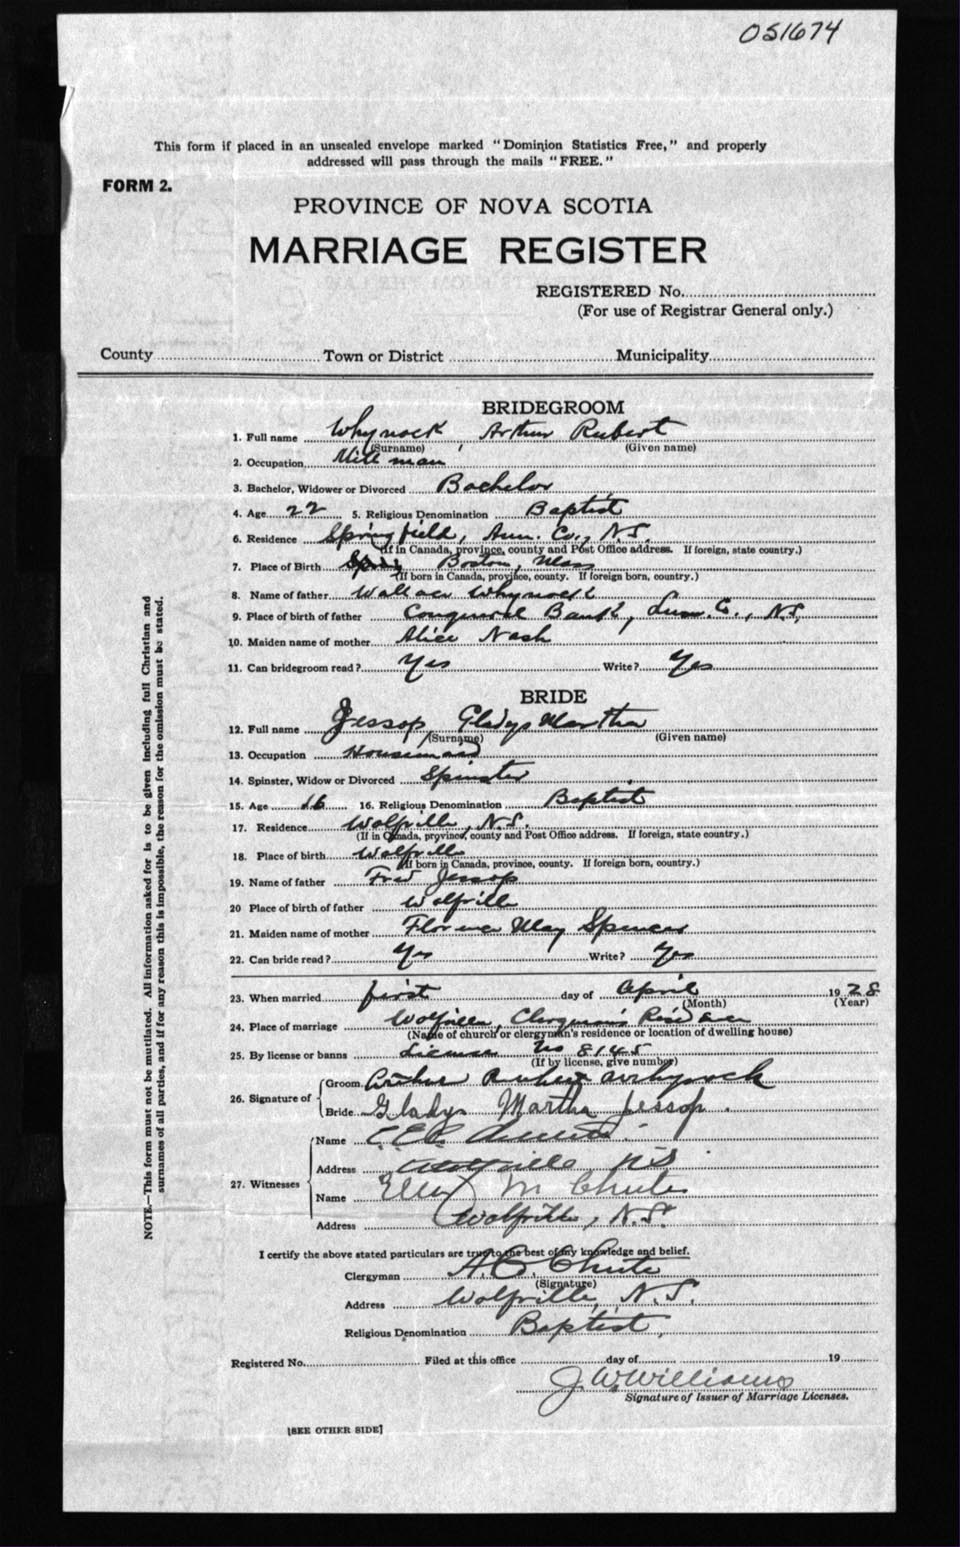 051674
This form if placed in an unsealed envelope marked "Dominion Statistics Free," and properly
addressed will pass through the mails "FREE."
FORM 2.
PROVINCE OF NOVA SCOTIA
MARRIAGE REGISTER
REGISTERED No.
(For use of Registrar General only.)
County Town or District Municipality
BRIDEGROOM
1. Full name Whynock, Arthur Rubert
(Surname) (Given name)
2. Occupation Mill man
3. Bachelor, Widower or Divorced Bachelor
4. Age 22 5. Religious Denomination Baptist
6. Residence Springfield, Ann. Co., N.S.
(If in Canada, province, county and Post Office address. If foreign, state country.)
7. Place of Birth Boston, Mass
(If born in Canada, province, county. If foreign born, country.)
8. Name of father Wallace Whynock
9. Place of birth of father Conquerel Bank, Lun. Co., N.S.
10. Maiden name of mother Alice Nash
11. Can bridegroom read? Yes Write? Yes
BRIDE
12. Full name Jessop, Gladys Martha
(Surname) (Given name)
13. Occupation Housemaid
14. Spinster, Widow or Divorced Spinster
15. Age 16 16. Religious Denomination Baptist
17. Residence Wolfville, N.S.
(If in Canada, province, county and Post Office address. If foreign, state country.)
18. Place of birth Wolfville
(If born in Canada, province, county. If foreign born, country.)
19. Name of father Fred Jessop
20 Place of birth of father Wolfville
21. Maiden name of mother Florence May Spencer
22. Can bride read? Yes Write? Yes
23. When married first day of April 1928
(Month) (Year)
24. Place of marriage Wolfville, Clergyman's Residence
(Name of church or clergyman's residence or location of dwelling house)
25. By license or banns License No 8145
(If by license, give number)
26. Signature of
Groom Arthur Rubert Whynock
Bride Gladys Martha Jessop.
27. Witnesses
Name
Address Wolfville N.S.
Name M Chute
Address Wolfville, N.S.
I certify the above stated particulars are true to the best of my knowledge and belief.
Clergyman A.C. Chute
(Signature)
Address Wolfville, N.S.
Religious Denomination Baptist,
Registered No. Filed at this office day of 19
J. W. Williams
Signature of Issuer of Marriage Licenses.
[SEE OTHER SIDE]
NOTE.—This form must not be mutilated. All information asked for is to be given including full Christian and
surnames of all parties, and if for any reason this is impossible, the reason for the omission must be stated.